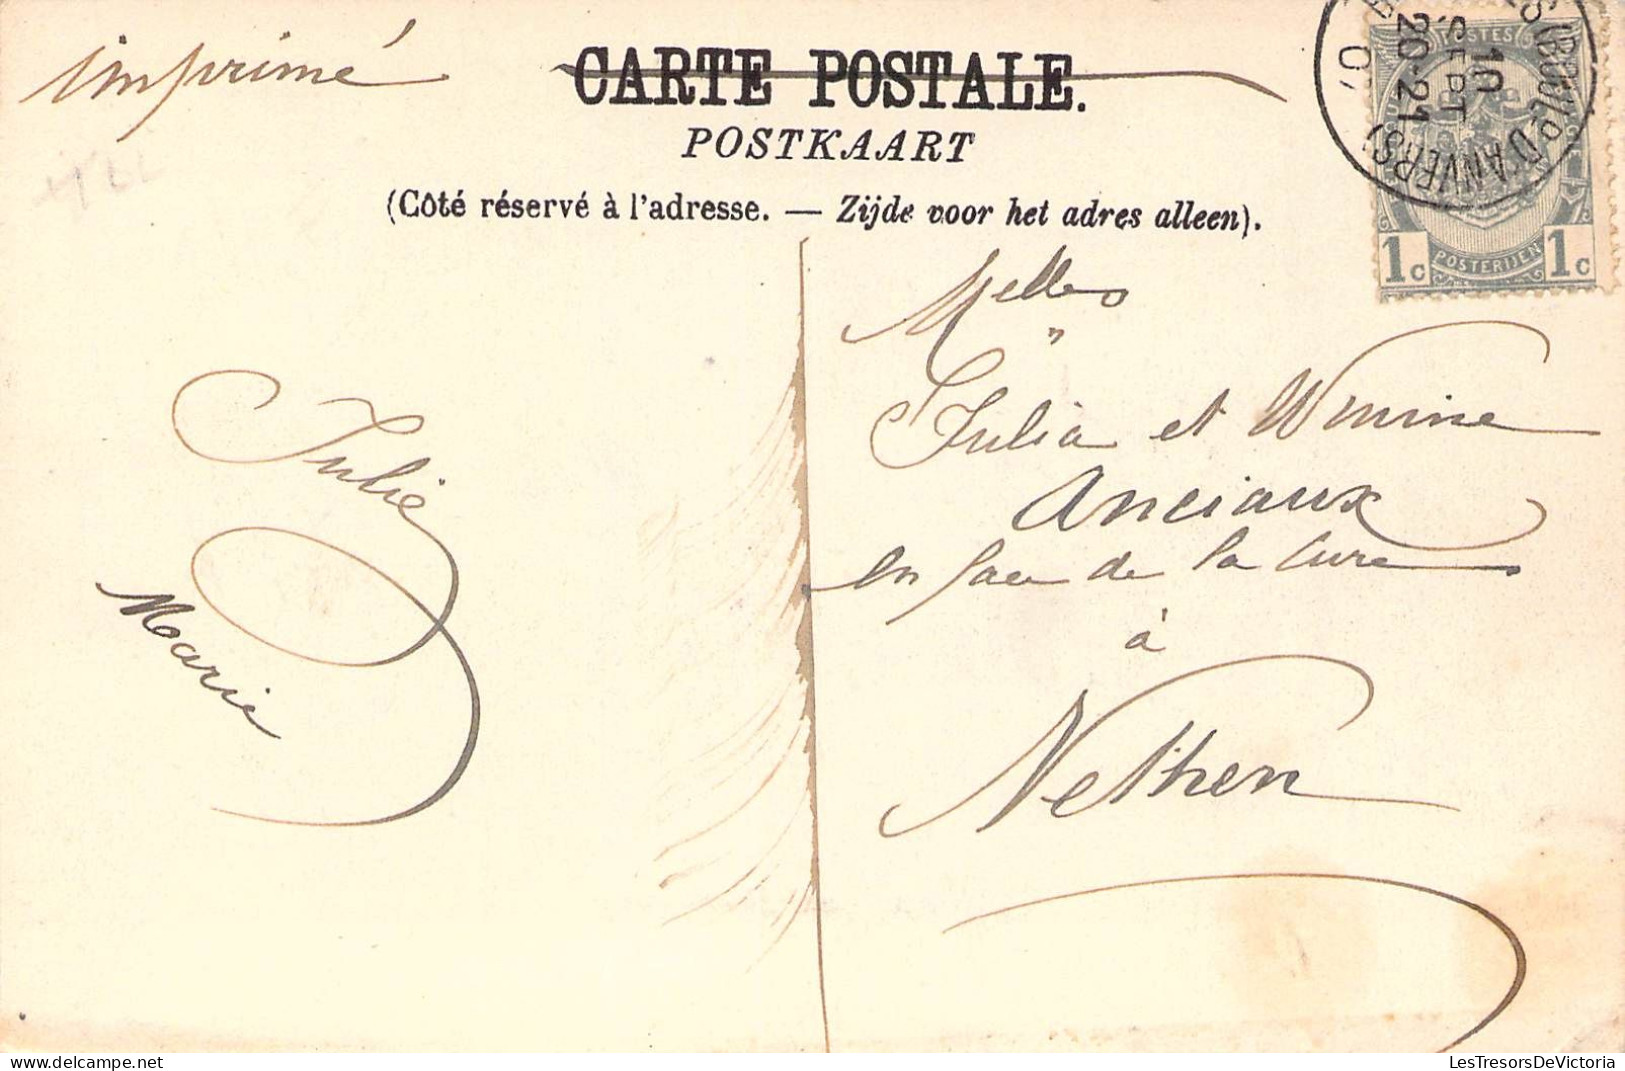 imprimé
CARTE POSTALE.
POSTKAART
(Côté réservé à l'adresse. — Zijde voor het adres alleen).
POSTES
1c POSTERIJEN 1c
(BOULD D'ANVERS)
10
SEPT
20-21
07
Melles
"
Julia et
Anciaux
en face de la Cure
à
Nethen
Julie
Marie
LesTresorsDeVictoria